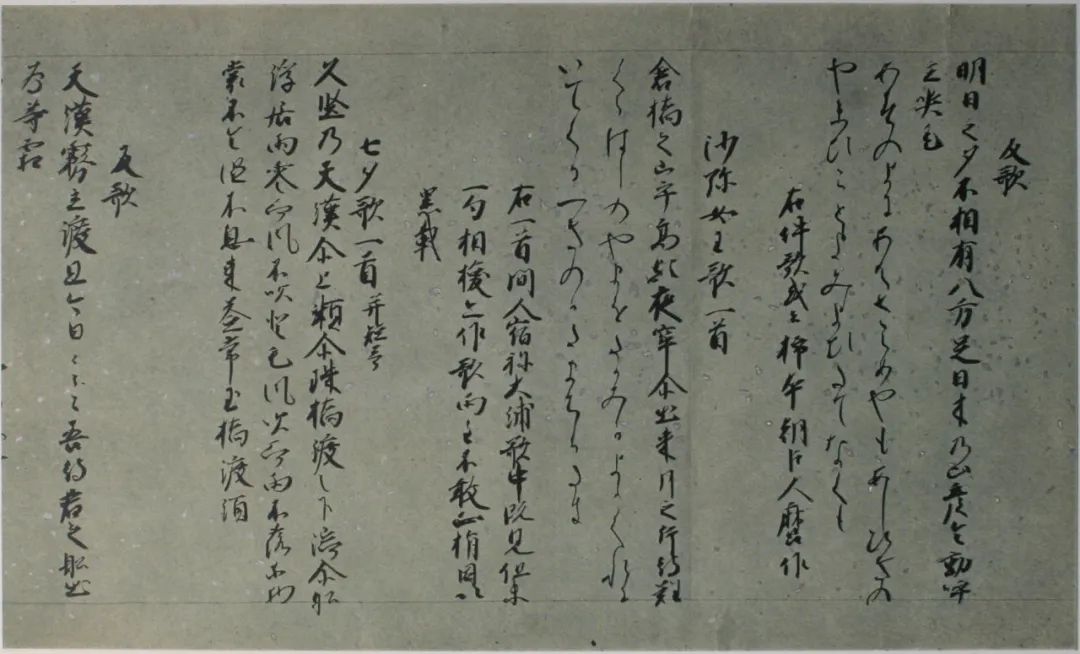 反歌
明日之夕不相有八方足日木乃山彦令動呼
立哭毛
あすのよひあはさらめやもあしひきの
やまひことよみよひたてなくも
右件歌或云柿本朝臣人麿作
沙弥女王歌一首
倉橋之山乎高歟夜牢尓出来月之片待難
くらはしのやまをたかみかよこもりに
いてくるつきのかたまちかたき
右一首間人宿祢大浦歌中既見但末
一句相換亦作歌両主不敢正指因以
累載
七夕歌一首并短哥
久堅乃天漢尓上瀬尓珠橋渡之下湍尓船
浮居雨零而風不吹登毛風吹而雨不落等物
裳不令湿不息来益常玉橋渡須
反歌
天漢霧立渡且今日々々々吾待君之船出
為等霜